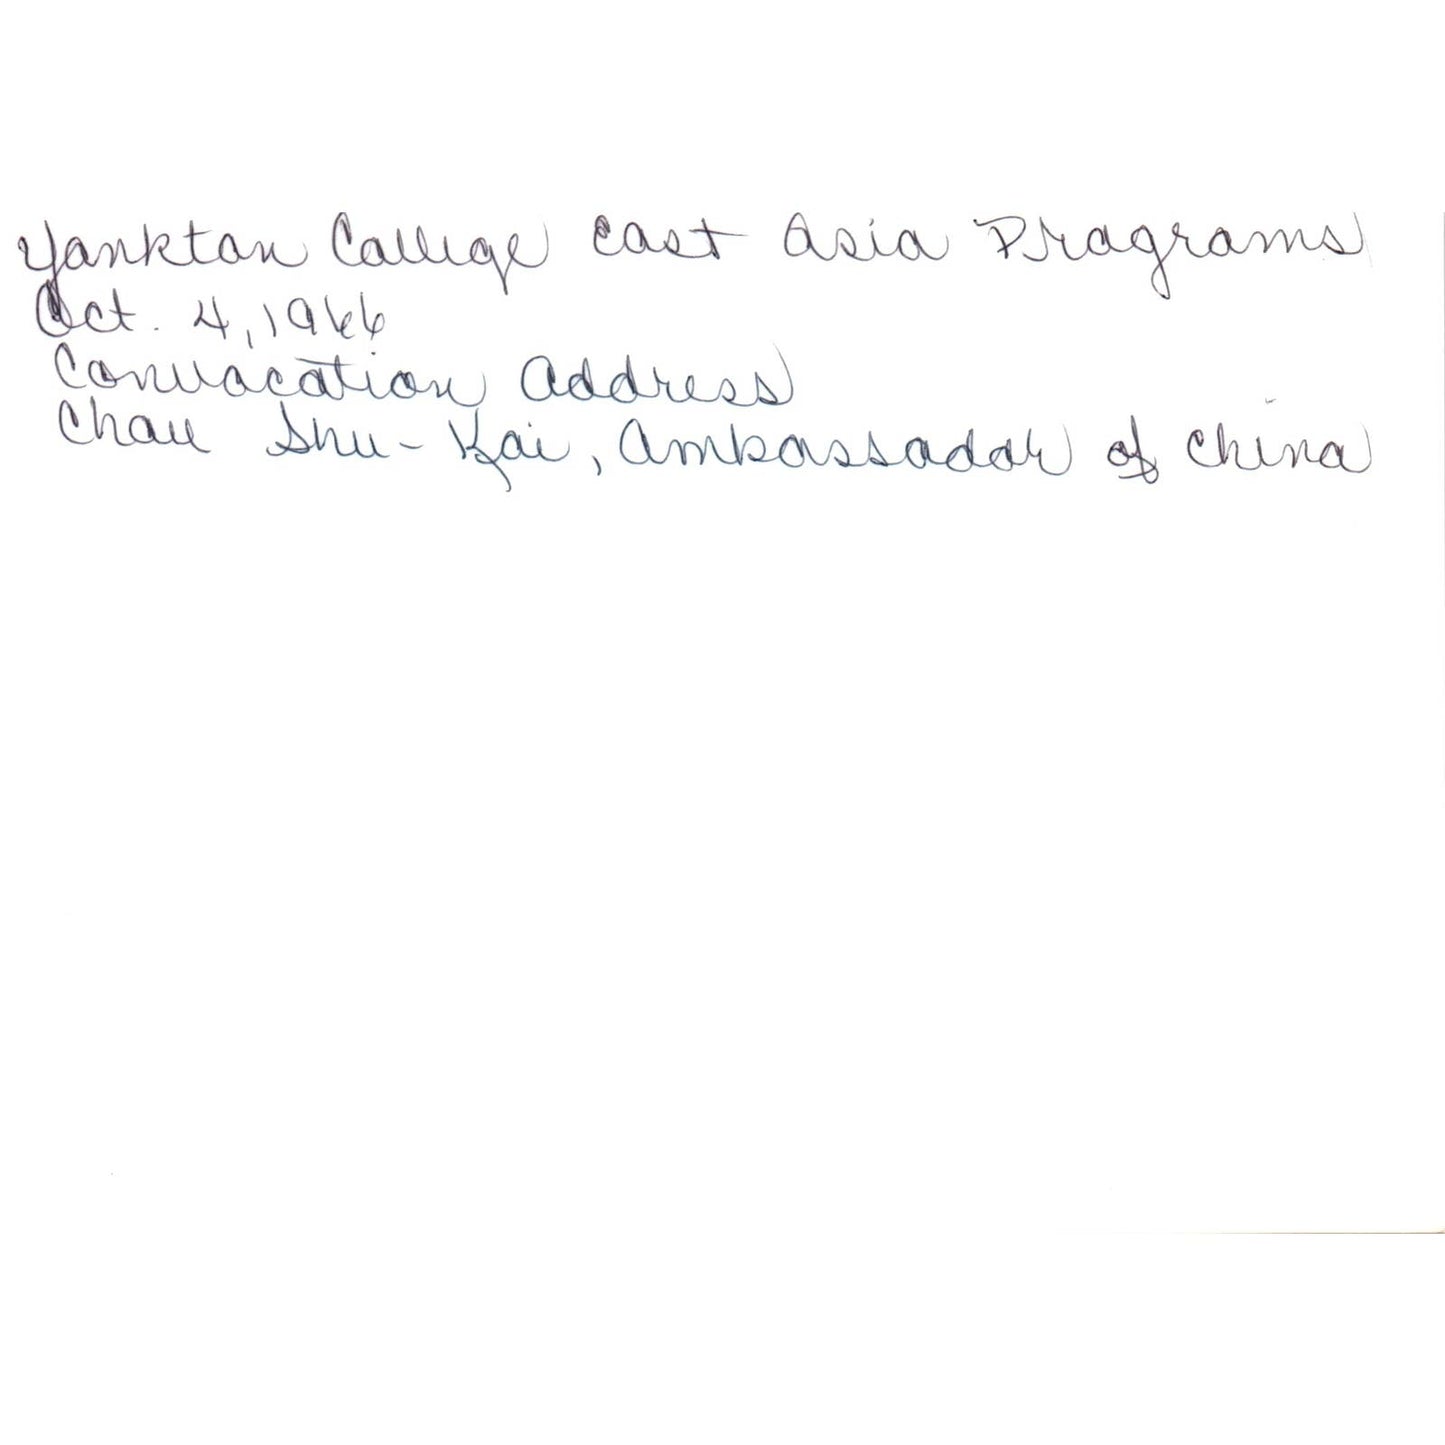 Yankton College East Asia Programs
Oct. 4, 1966
Convocation Address
Chow Shu-Kai, Ambassador of China